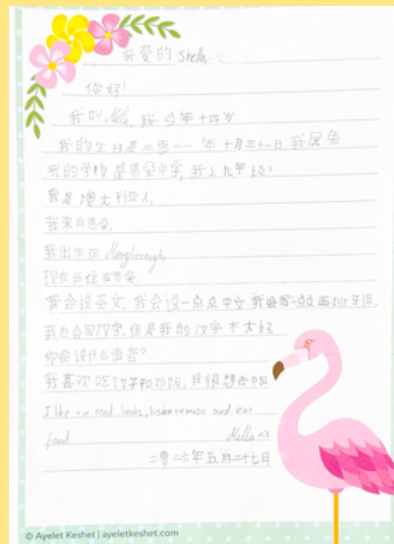 亲爱的 Stella
你好!
我叫 我 今年 十四岁
我的生日是二零一一 年 十月三十一日 我属兔.
我的学校是 中学, 我上九年级!
我是澳大利亚人,
我来自
我出生在
现在 住在
我会说英文, 我会说一点点中文, 我会写一点点西班牙语,
我也会写汉字, 但是我的汉字不太好
你会说什么语言?
我喜欢吃 和炒饭, 我很想去中国
I like to read books, listen to music and eat
food
二零二六年五月二十七日
© Ayelet Keshet | ayeletkeshet.com